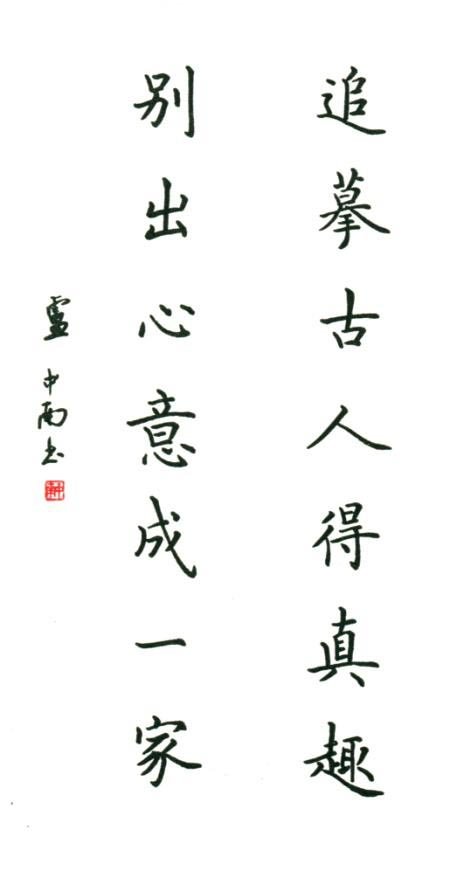 追摹古人得真趣
别出心意成一家
盧中南书